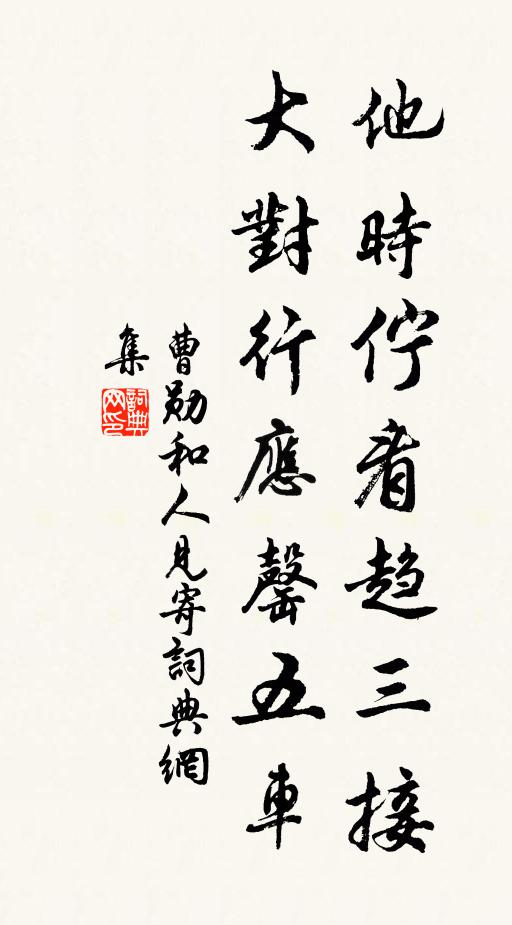 他時佇看趋三接
大對行應罄五車
曹勛和人見寄詞典網
集
詞典網印